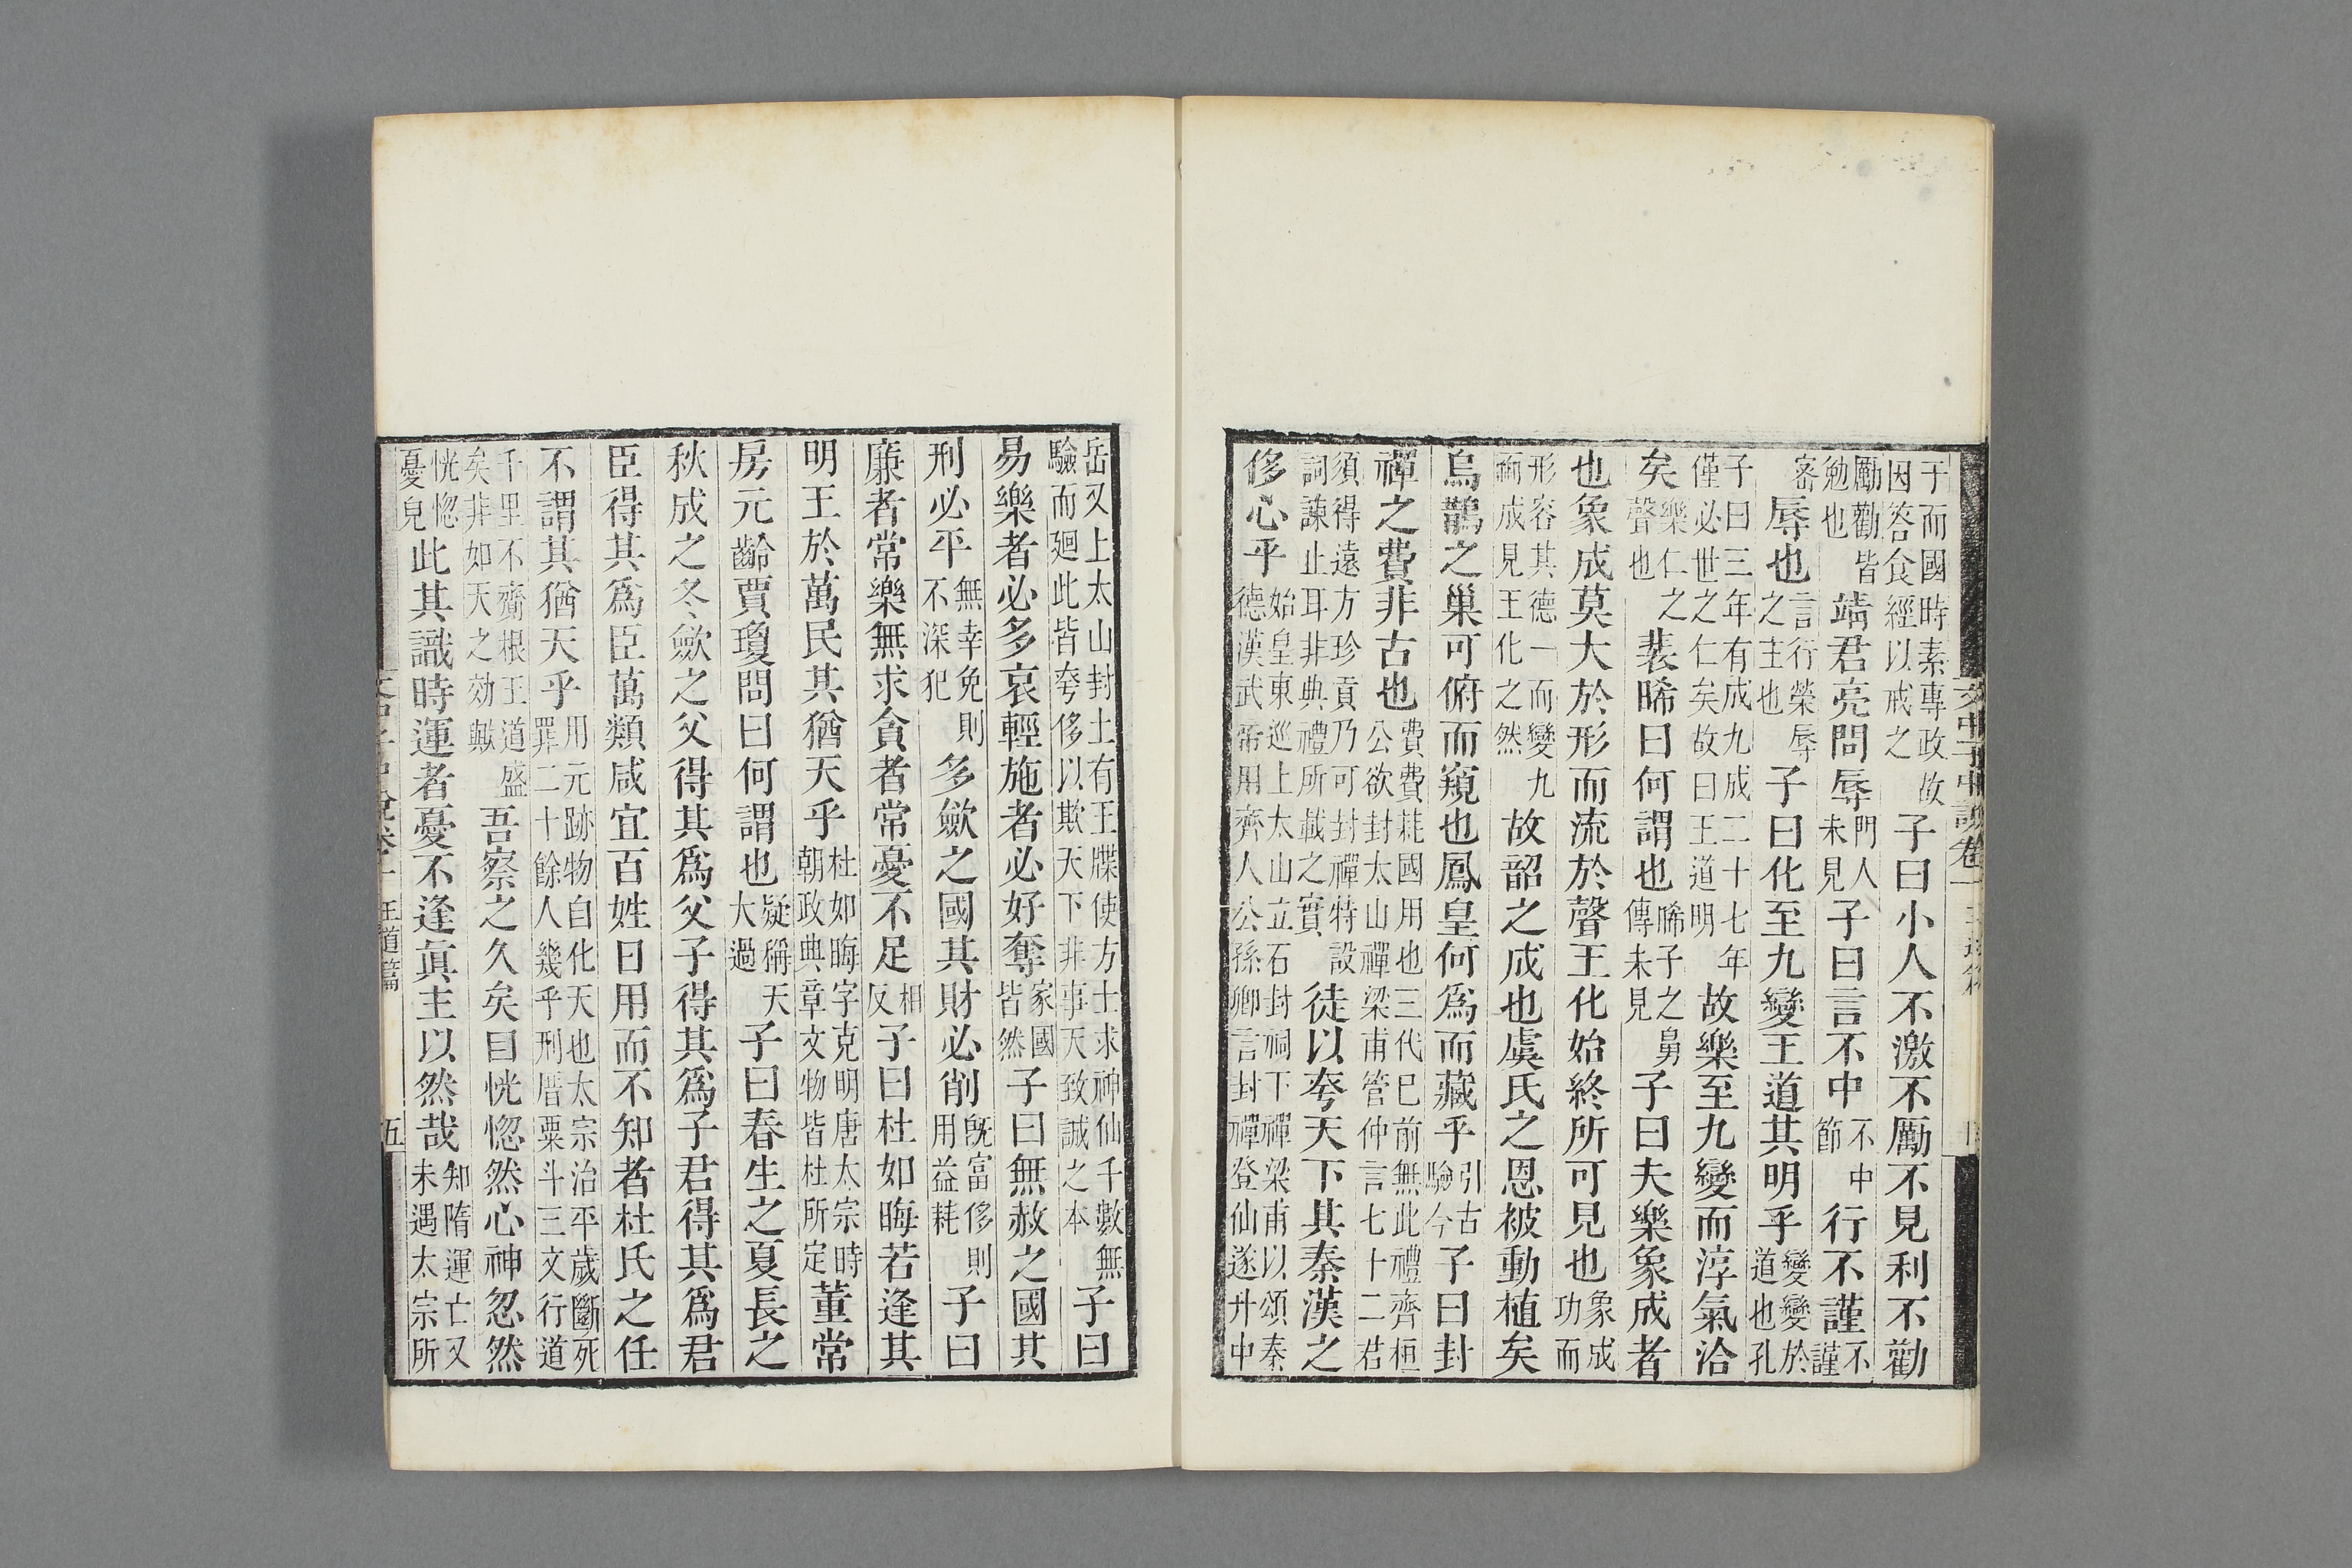 文中子中說卷一
于而國時素專政故因答食經以戒之子曰小人不激不厲不見利不勸
勵勸皆勉也靖君亮問辱門人未見子曰言不中不中節行不謹不謹
密辱也言行榮辱之主也子曰化至九變王道其明乎變變於道也孔
子曰三年有成九成二十七年僅必世之仁矣故曰王道明故樂至九變而淳氣洽
矣樂仁之聲也裴晞曰何謂也晞子之舅傳未見子曰夫樂象成者
也象成莫大於形而流於聲王化始終所可見也象成功而
形容其德一而變九而成見王化之然故韶之成也虞氏之恩被動植矣
烏鵲之巢可俯而窺也鳳皇何爲而藏乎引古驗今子曰封
禪之費非古也費費耗國用也三代已前無此禮齊桓公欲封太山禪梁甫管仲言七十二君
須得遠方珍貢乃可封禪特設詞諫止耳非典禮所載之實徒以夸天下其秦漢之
侈心乎始皇東巡上太山立石封祠下禪梁甫以頌秦德漢武帝用齊人公孫卿言封禪登仙遂升中
岳又上太山封土有王牒使方士求神仙千數無驗而廻此皆夸侈以欺天下非事天致誠之本子曰
易樂者必多哀輕施者必好奪家國皆然子曰無赦之國其
刑必平無幸免則不深犯多斂之國其財必削旣富侈則用益耗子曰
廉者常樂無求貪者常憂不足相反子曰杜如晦若逢其
明王於萬民其猶天乎杜如晦字克明唐太宗時朝政典章文物皆杜所定董常
房元齡賈瓊問曰何謂也疑稱天大過子曰春生之夏長之
秋成之冬斂之父得其爲父子得其爲子君得其爲君
臣得其爲臣萬類咸宜百姓日用而不知者杜氏之任
不謂其猶天乎用元跡物自化天也太宗治平歲斷死罪二十餘人幾乎刑厝粟斗三文行道
千里不齎根王道盛矣非如天之効歟吾察之久矣目恍惚然心神忽然
恍惚憂皃此其識時運者憂不逢眞主以然哉知隋運亡又未遇太宗所
王道篇
五